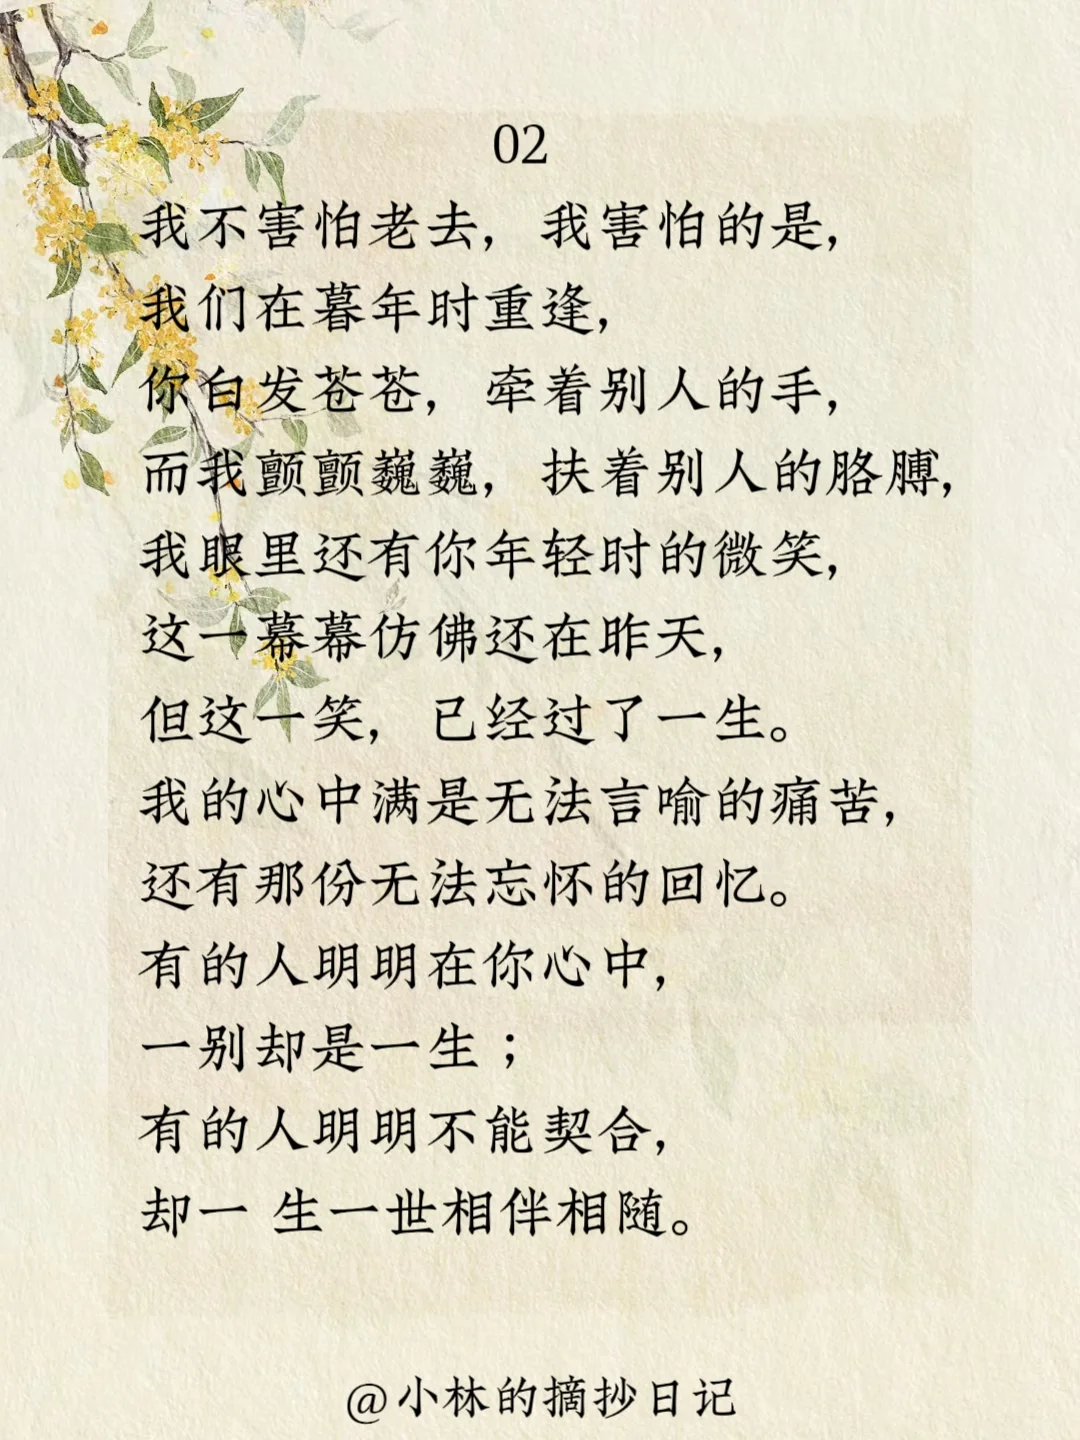 02
我不害怕老去，我害怕的是，
我们在暮年时重逢，
你白发苍苍，牵着别人的手，
而我颤颤巍巍，扶着别人的胳膊，
我眼里还有你年轻时的微笑，
这一幕幕仿佛还在昨天，
但这一笑，已经过了一生。
我的心中满是无法言喻的痛苦，
还有那份无法忘怀的回忆。
有的人明明在你心中，
一别却是一生；
有的人明明不能契合，
却一 生一世相伴相随。
@小林的摘抄日记